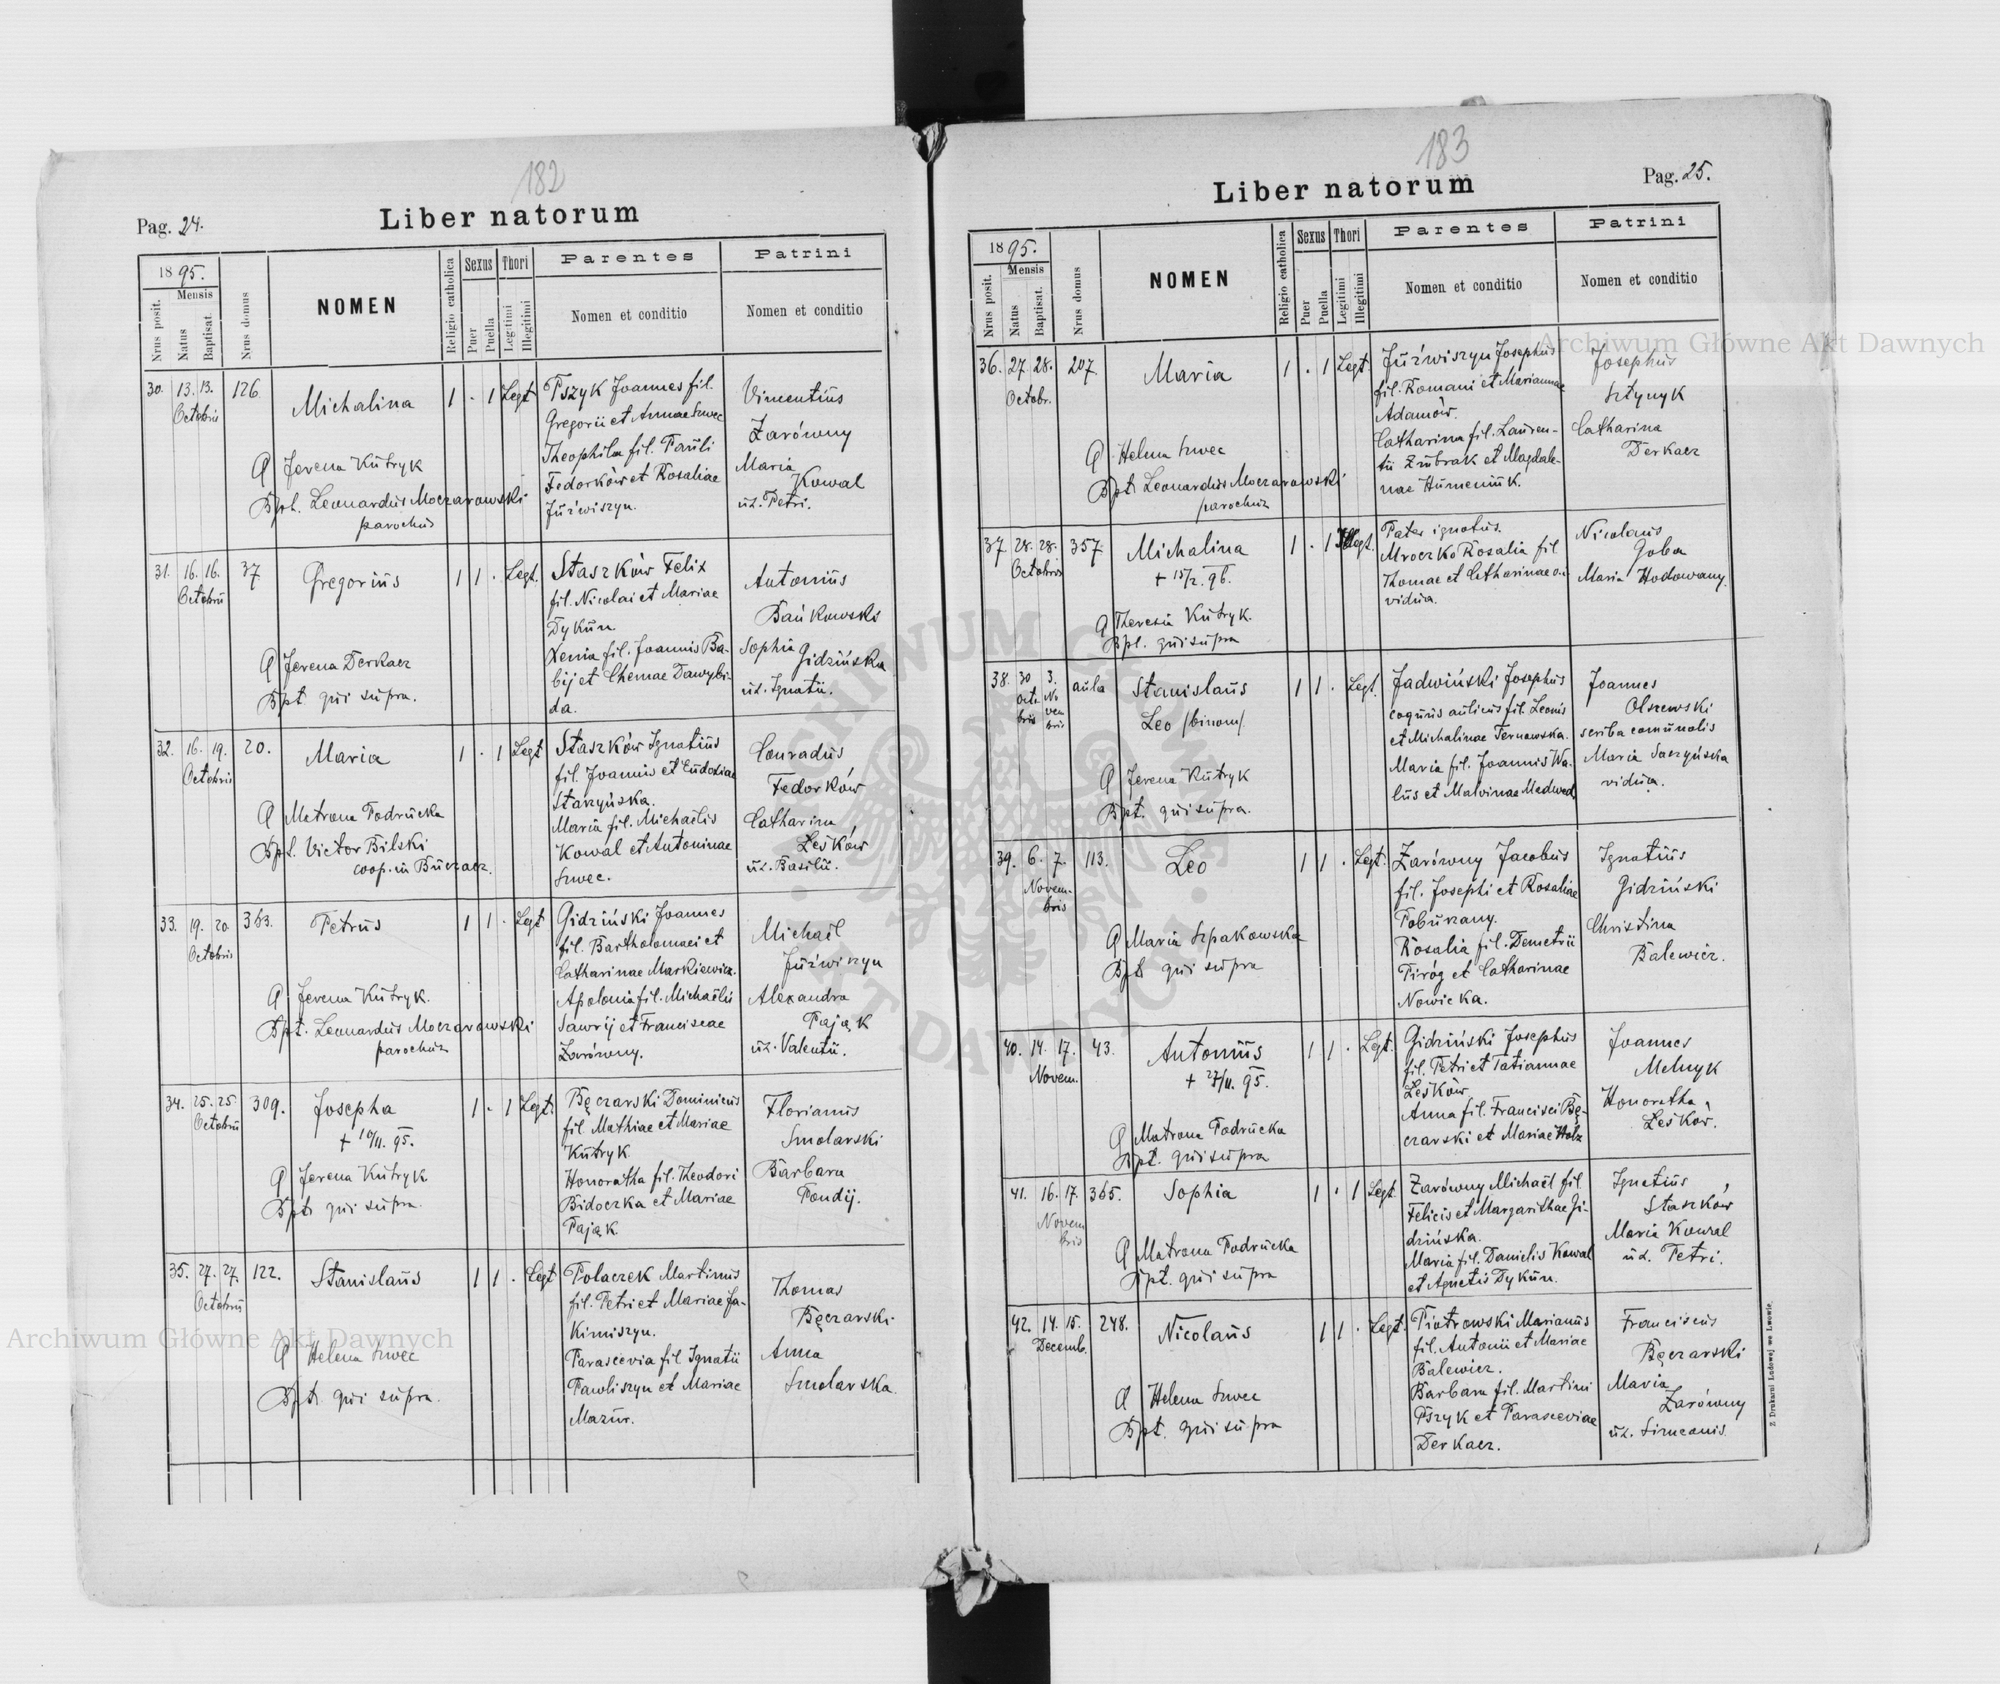 182
Pag. 24.
Liber natorum
1895.
Nrus posit.
Mensis
Natus
Baptisat.
Nrus domus
NOMEN
Religio catholica
Sexus
Puer
Puella
Thori
Legitimi
Illegitimi
Parentes
Nomen et conditio
Patrini
Nomen et conditio
30. 13. 13. 126.
Octobris
Michalina
1 . 1 Legt
Pszyk Joannes fil.
Gregorii et Annae Szwec
Theophila fil. Pauli
Fedorków et Rosaliae
Juźwiszyn.
Vincentius
Zarówny
Maria
Kowal
ux. Petri.
O Jerena Kutryk
Bpt. Leonardus Moczarowski
parochus
31. 16. 16. 37
Octobris
Gregorius
1 1 . Legt.
Staszków Felix
fil. Nicolai et Mariae
Dykun
Xenia fil. Joannis Ba-
bij et Chemae Dawybi-
da.
Antonius
Bańkowski
Sophia Gidzińska
ux. Ignatii.
O Jerena Derkacz
Bpt qui supra.
32. 16. 19. 20.
Octobris
Maria
1 . 1 Legt
Staszków Ignatius
fil. Joannis et Eudoxiae
Starzyńska.
Maria fil. Michaëlis
Kowal et Antoninae
Szwec.
Conradus
Fedorków
Catharina
Leśków
ux. Basilii.
O Matrona Podrucka
Bpt. Victor Bilski
coop. in Buczacz.
33. 19. 20 363.
Octobris
Petrus
1 1 . Legt
Gidziński Joannes
fil. Bartholomaei et
Catharinae Markiewicz.
Apolonia fil. Michaëlis
Sawrij et Franciscae
Zarówny.
Michaël
Juźwiszyn
Alexandra
Pająk
ux. Valentii.
O Jerena Kutryk.
Bpt. Leonardus Moczarowski
parochus
34. 25. 25. 309.
Octobris
Josepha
+ 10/11. 95.
1 . 1 Legt.
Bęczarski Dominicus
fil. Mathiae et Mariae
Kutryk
Honoratha fil. Theodori
Bidoczka et Mariae
Pająk.
Florianus
Smolarski
Barbara
Pondij.
O Jerena Kutryk
Bpt qui supra.
35. 27. 27. 122.
Octobris
Stanislaus
1 1 . Legt
Polaczek Martinus
fil. Petri et Mariae Ja-
kimiszyn.
Parascevia fil Ignatii
Pawliszyn et Mariae
Mazur.
Thomas
Bęczarski
Anna
Smolarska.
O Helena Szwec
Bpt. qui supra.
183
Liber natorum
Pag. 25.
1895.
Nrus posit.
Mensis
Natus
Baptisat.
Nrus domus
NOMEN
Religio catholica
Sexus
Puer
Puella
Thori
Legitimi
Illegitimi
Parentes
Nomen et conditio
Patrini
Nomen et conditio
36. 27. 28. 207.
Octobr.
Maria
1 . 1 Legt
Juźwiszyn Josephus
fil. Romani et Mariannae
Adamów.
Catharina fil. Lauren-
tii Zubrak et Magdale-
nae Humeniuk.
Josephus
Sztynyk
Catharina
Derkacz
O Helena Szwec
Bpt Leonardus Moczarowski
parochus
37. 28. 28. 357.
Octobris
Michalina
+ 15/2. 96.
1 . 1 Illegt.
Pater ignotus.
Mroczko Rosalia fil
Thomae et Catharinae
vidua.
Nicolaus
Goba
Maria Hodowany.
O Theresia Kutryk.
Bpt. qui supra
38. 30 3. aula
Octobris Novembris
Stanislaus
Leo /binom/.
1 1 . Legt.
Jadwiński Josephus
coquus aulicus fil. Leonis
et Michalinae Ternowska.
Maria fil. Joannis Wa-
lus et Malvinae Medwed.
Joannes
Olszewski
scriba comunalis
Maria Saczyńska
vidua.
O Jerena Kutryk
Bpt. qui supra.
39. 6. 7. 113.
Novembris
Leo
1 1 . Legt.
Zarówny Jacobus
fil. Josephi et Rosaliae
Poburzany.
Rosalia fil. Demetrii
Piróg et Catharinae
Nowicka.
Ignatius
Gidziński
Christina
Balewicz.
O Maria Szpakowska
Bpt qui supra
40. 14. 17. 43.
Novem.
Antonius
+ 27/11. 95.
1 1 . Legt.
Gidziński Josephus
fil. Petri et Tatiannae
Leśków.
Anna fil. Francisci Bę-
czarski et Mariae Hołz
Joannes
Melnyk
Honoratha
Leśków.
O Matrona Podrucka
Bpt. qui supra
41. 16. 17. 365.
Novembris
Sophia
1 . 1 Legt.
Zarówny Michaël fil.
Felicis et Margarithae Gi-
dzińska.
Maria fil. Danielis Kowal
et Agnetis Dykun.
Ignatius
Staszków
Maria Kowal
ux. Petri.
O Matrona Podrucka
Bpt. qui supra
42. 14. 15. 248.
Decemb.
Nicolaus
1 1 . Legt.
Piotrowski Marianus
fil. Antonii et Mariae
Balewicz.
Barbara fil. Martini
Pszyk et Parasceviae
Derkacz.
Franciscus
Bęczarski
Maria
Zarówny
ux. Simeonis.
O Helena Szwec
Bpt. qui supra
Z Drukarni Ludowej we Lwowie.
Archiwum Główne Akt Dawnych
Archiwum Główne Akt Dawnych
ARCHIWUM GŁÓWNE AKT DAWNYCH